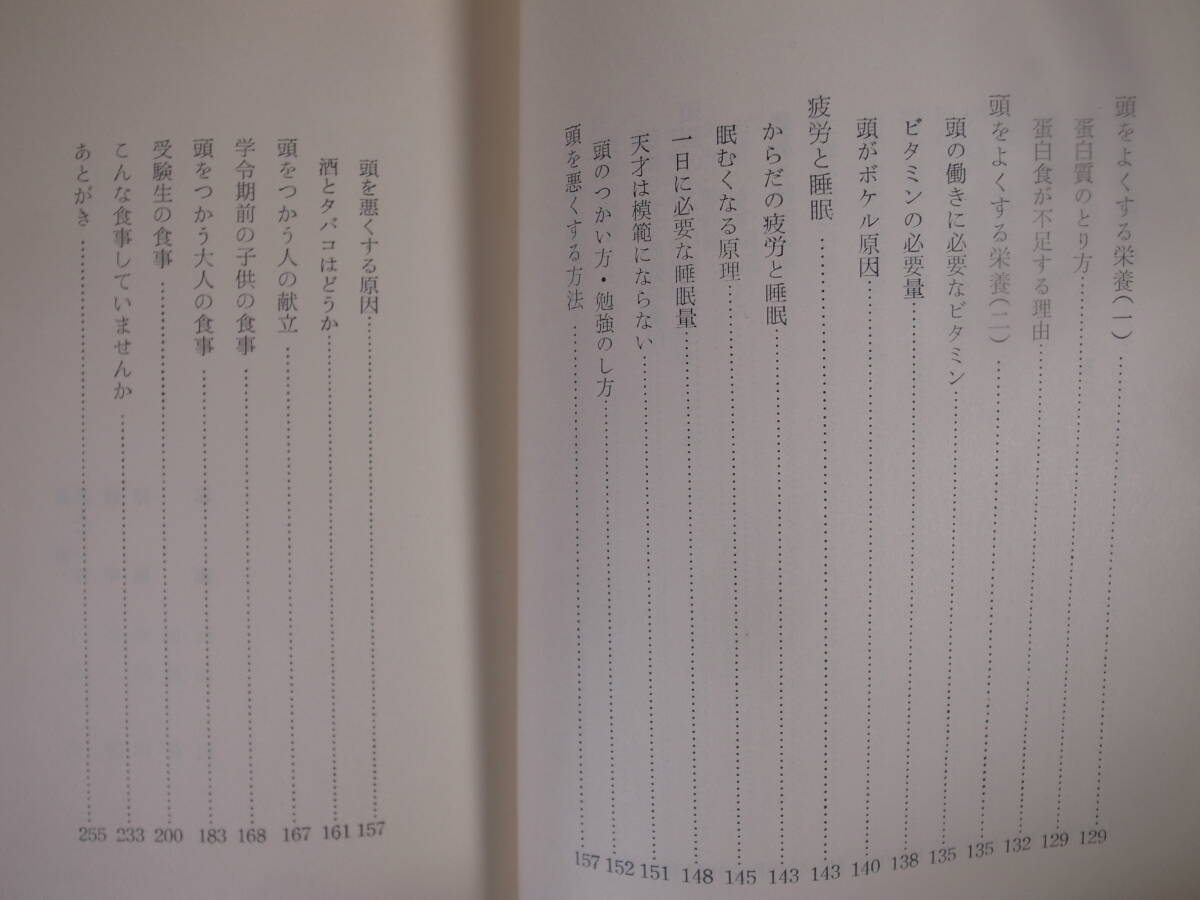 頭をよくする栄養(一)……………………129
蛋白質のとり方……………………129
蛋白食が不足する理由……………………132
頭をよくする栄養(二)……………………135
頭の働きに必要なビタミン……………………135
ビタミンの必要量……………………138
頭がボケル原因……………………140
疲労と睡眠……………………143
からだの疲労と睡眠……………………143
眠むくなる原理……………………145
一日に必要な睡眠量……………………148
天才は模範にならない……………………151
頭のつかい方・勉強のし方……………………152
頭を悪くする方法……………………157
頭を悪くする原因……………………157
酒とタバコはどうか……………………161
頭をつかう人の献立……………………167
学令期前の子供の食事……………………168
頭をつかう大人の食事……………………183
受験生の食事……………………200
こんな食事していませんか……………………233
あとがき……………………255